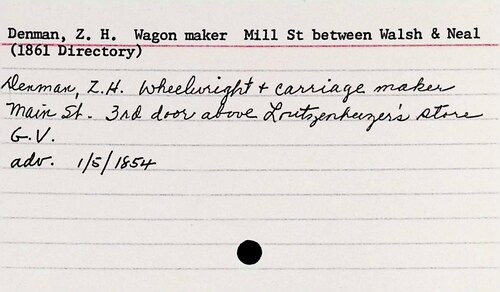 Denman, Z. H. Wagon maker Mill St between Walsh & Neal
(1861 Directory)
Denman, Z.H. Wheelwright + carriage maker
Main St. 3rd door above Loutzenheizer's store
G.V.
adv. 1/5/1854